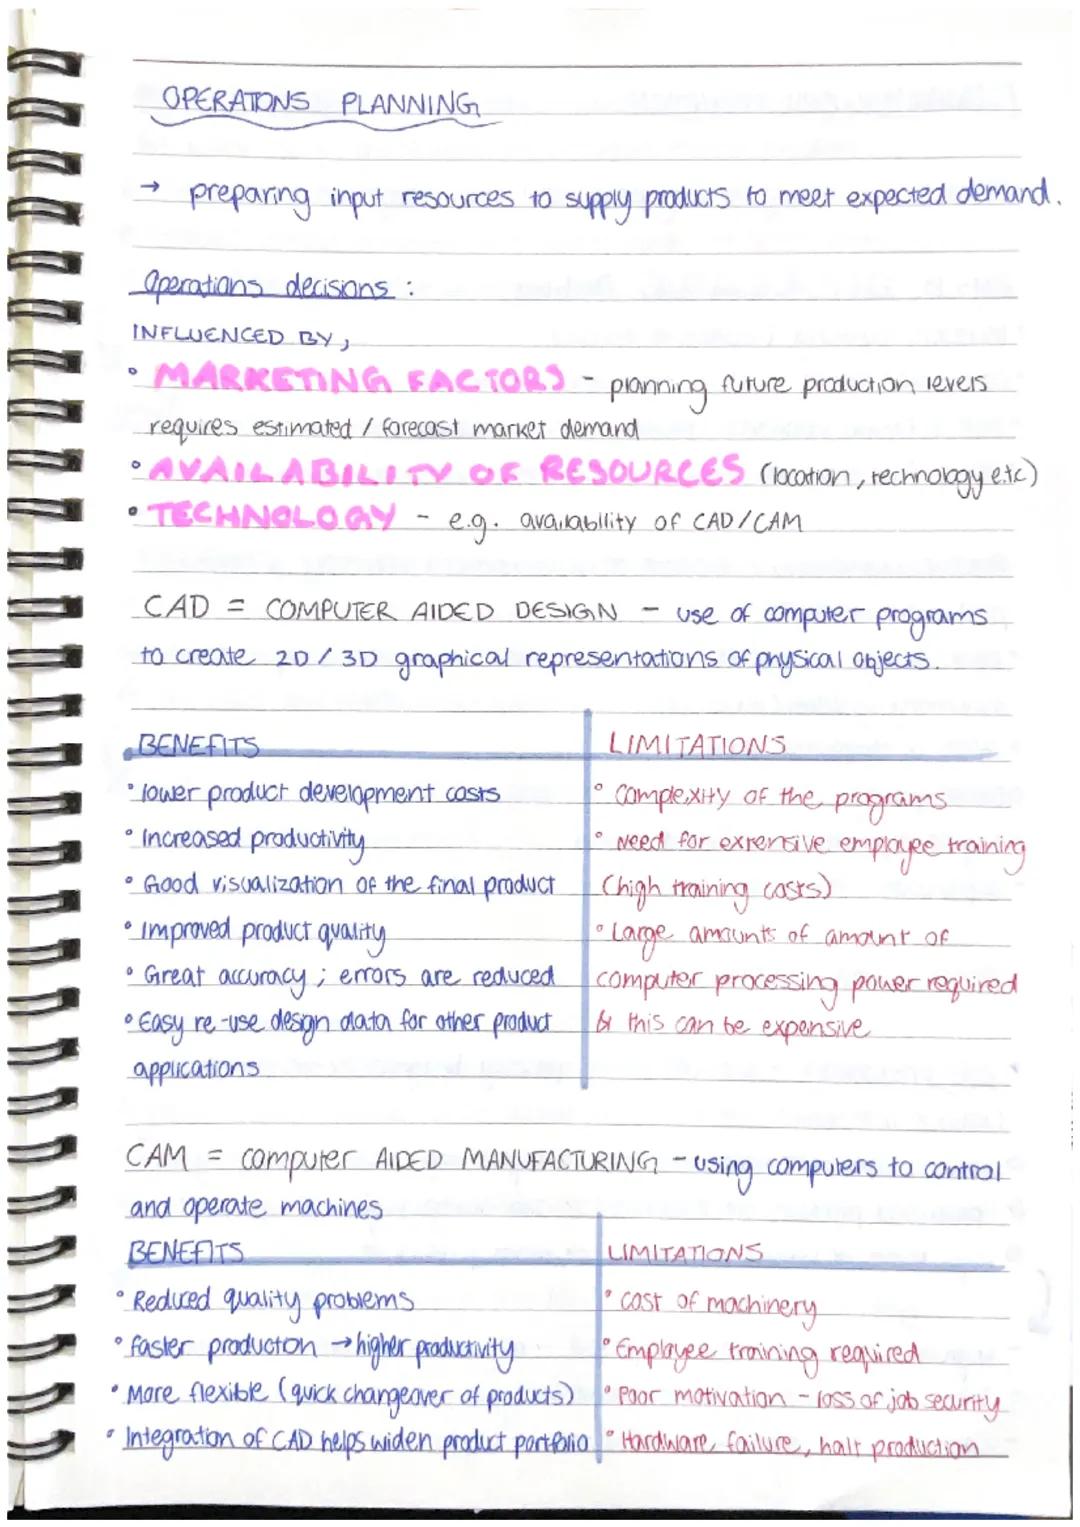 OPERATIONS PLANNING
→ preparing input resources to supply products to meet expected demand.
Operations decisions :
INFLUENCED BY,
• MARKETING FACTORS - planning future production levels
requires estimated / forecast market demand
• AVAILABILITY OF RESOURCES (location, technology e.t.c)
• TECHNOLOGY - e.g. availability of CAD/CAM
CAD = COMPUTER AIDED DESIGN - use of computer programs
to create 2D / 3D graphical representations of physical objects.
BENEFITS
• lower product development costs
• Increased productivity
• Good visualization of the final product
• Improved product quality
• Great accuracy ; errors are reduced
• Easy re-use design data for other product
applications
LIMITATIONS
• Complexity of the programs
• Need for extensive employee training
(high training costs)
• Large amounts of amount of
computer processing power required
& this can be expensive
CAM = computer AIDED MANUFACTURING - using computers to control
and operate machines
BENEFITS
• Reduced quality problems
• faster producton → higher productivity
• More flexible (quick changeover of products)
• Integration of CAD helps widen product portfolio
LIMITATIONS
• cost of machinery
• Employee training required
• Poor motivation - loss of job security
• Hardware failure, halt production